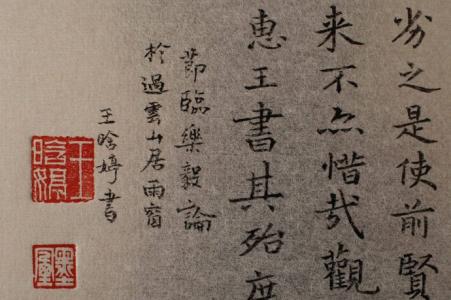 劣之是使前賢
来不亦惜哉觀
惠王書其殆庶
節臨樂毅論
於過雲山居雨窗
王晗婷書
王晗婷